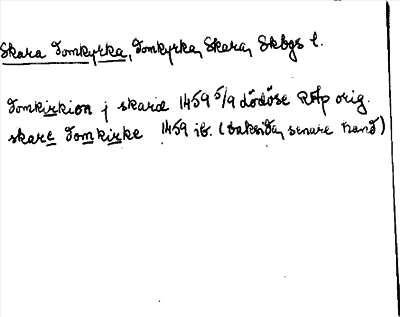 Skara Domkyrka, Domkyrka, Skara, Skbgs l.
Domkirkion j skaræ 1459 5/9 Lödöse RAp orig.
skare Domkirke 1459 ib. (baksida, senare hand)